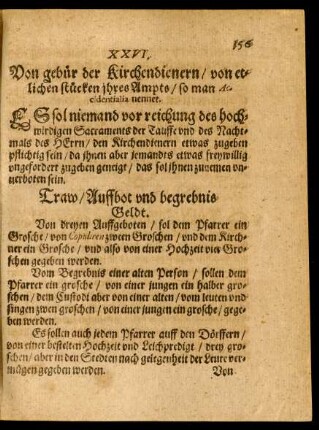 156
XXVI.
Von gebür der Kirchendienern / von et-
lichen stücken jhres Ampts / so man Ac-
cidentialia nennet.
ES sol niemand vor reichung des hoch-
wirdigen Sacraments der Tauffe vnd des Nacht-
mals des HErrn / den Kirchendienern etwas zugeben
pflichtig sein / da jhnen aber jemandts etwas freywillig
vngefordert zugeben geneigt / das sol jhnen zunemen vn-
uerboten sein.
Traw / Auffbot vnd begrebnis
Geldt.
Von dreyen Auffgeboten / sol dem Pfarrer ein
Groschẽ / von Copuliren zween Groschen / vnd dem Kirch-
ner ein Grosche / vnd also von einer Hochzeit vier Gro-
schen gegeben werden.
Vom Begrebnis einer alten Person / sollen dem
Pfarrer ein grosche / von einer jungen ein halber gro-
schen / dem Custodi aber von einer alten / vom leuten vnd
singen zwen groschen / von einer jungen ein grosche / gege-
ben werden.
Es sollen auch jedem Pfarrer auff den Dörffern /
von einer bestelten Hochzeit vnd Leichpredigt / drey gro-
schen / aber in den Stedten nach gelegenheit der Leute ver-
mügen gegeben werden.
Von